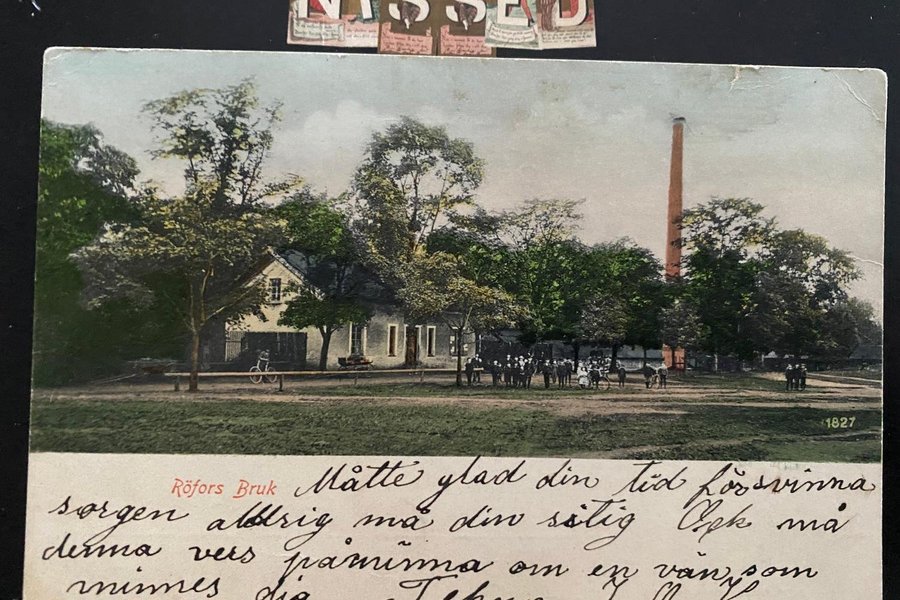 NISSED
1827
Röfors Bruk
Måtte glad din tid försvinna
sorgen aldrig må din stig Och må
denna vers påminna om en vän som
minnes dig